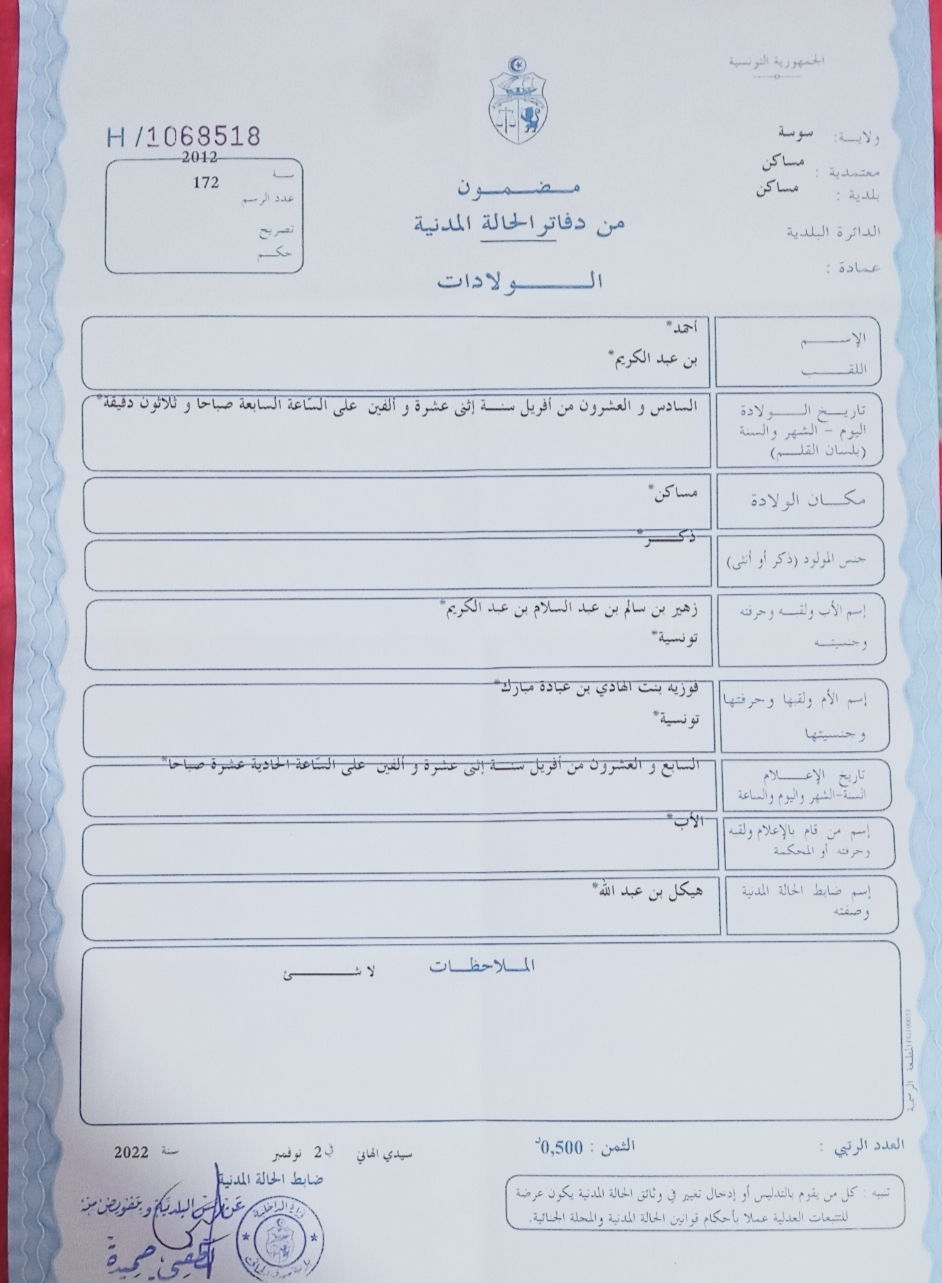 الجمهورية التونسية
ولاية: سوسة
معتمدية : مساكن
بلدية : مساكن
الدائرة البلدية
عمادة :
H/1068518
سنة 2012
عدد الرسم 172
تصريح
حكم
مضمون
من دفاتر الحالة المدنية
الولادات
الإسم أحمد*
اللقب بن عبد الكريم*
تاريخ الولادة
اليوم - الشهر والسنة
(بلسان القلم)
السادس و العشرون من أفريل سنة إثنى عشرة و ألفين على السّاعة السابعة صباحا و ثلاثون دقيقة*
مكان الولادة مساكن*
جنس المولود (ذكر أو أنثى) ذكر*
إسم الأب ولقبه وحرفته
وجنسيته
زهير بن سالم بن عبد السلام بن عبد الكريم*
تونسية*
إسم الأم ولقبها وحرفتها
وجنسيتها
فوزيه بنت الهادي بن عبادة مبارك*
تونسية*
تاريخ الإعلام
السنة-الشهر واليوم والساعة
السابع و العشرون من أفريل سنة إثنى عشرة و ألفين على السّاعة الحادية عشرة صباحا*
إسم من قام بالإعلام ولقبه
وحرفته أو المحكمة
الأب*
إسم ضابط الحالة المدنية
وصفته
هيكل بن عبد الله*
الملاحظات لا شئ
المطبعة الرسمية
العدد الرتبي :
الثمن : 0,500د
سيدي الهاني في 2 نوفمبر سنة 2022
ضابط الحالة المدنية
عن رئيس البلدية و بتفويض منه
تنبيه : كل من يقوم بالتدليس أو إدخال تغيير في وثائق الحالة المدنية يكون عرضة
للتتبعات العدلية عملا بأحكام قوانين الحالة المدنية والمجلة الجنائية.
وزارة الداخلية